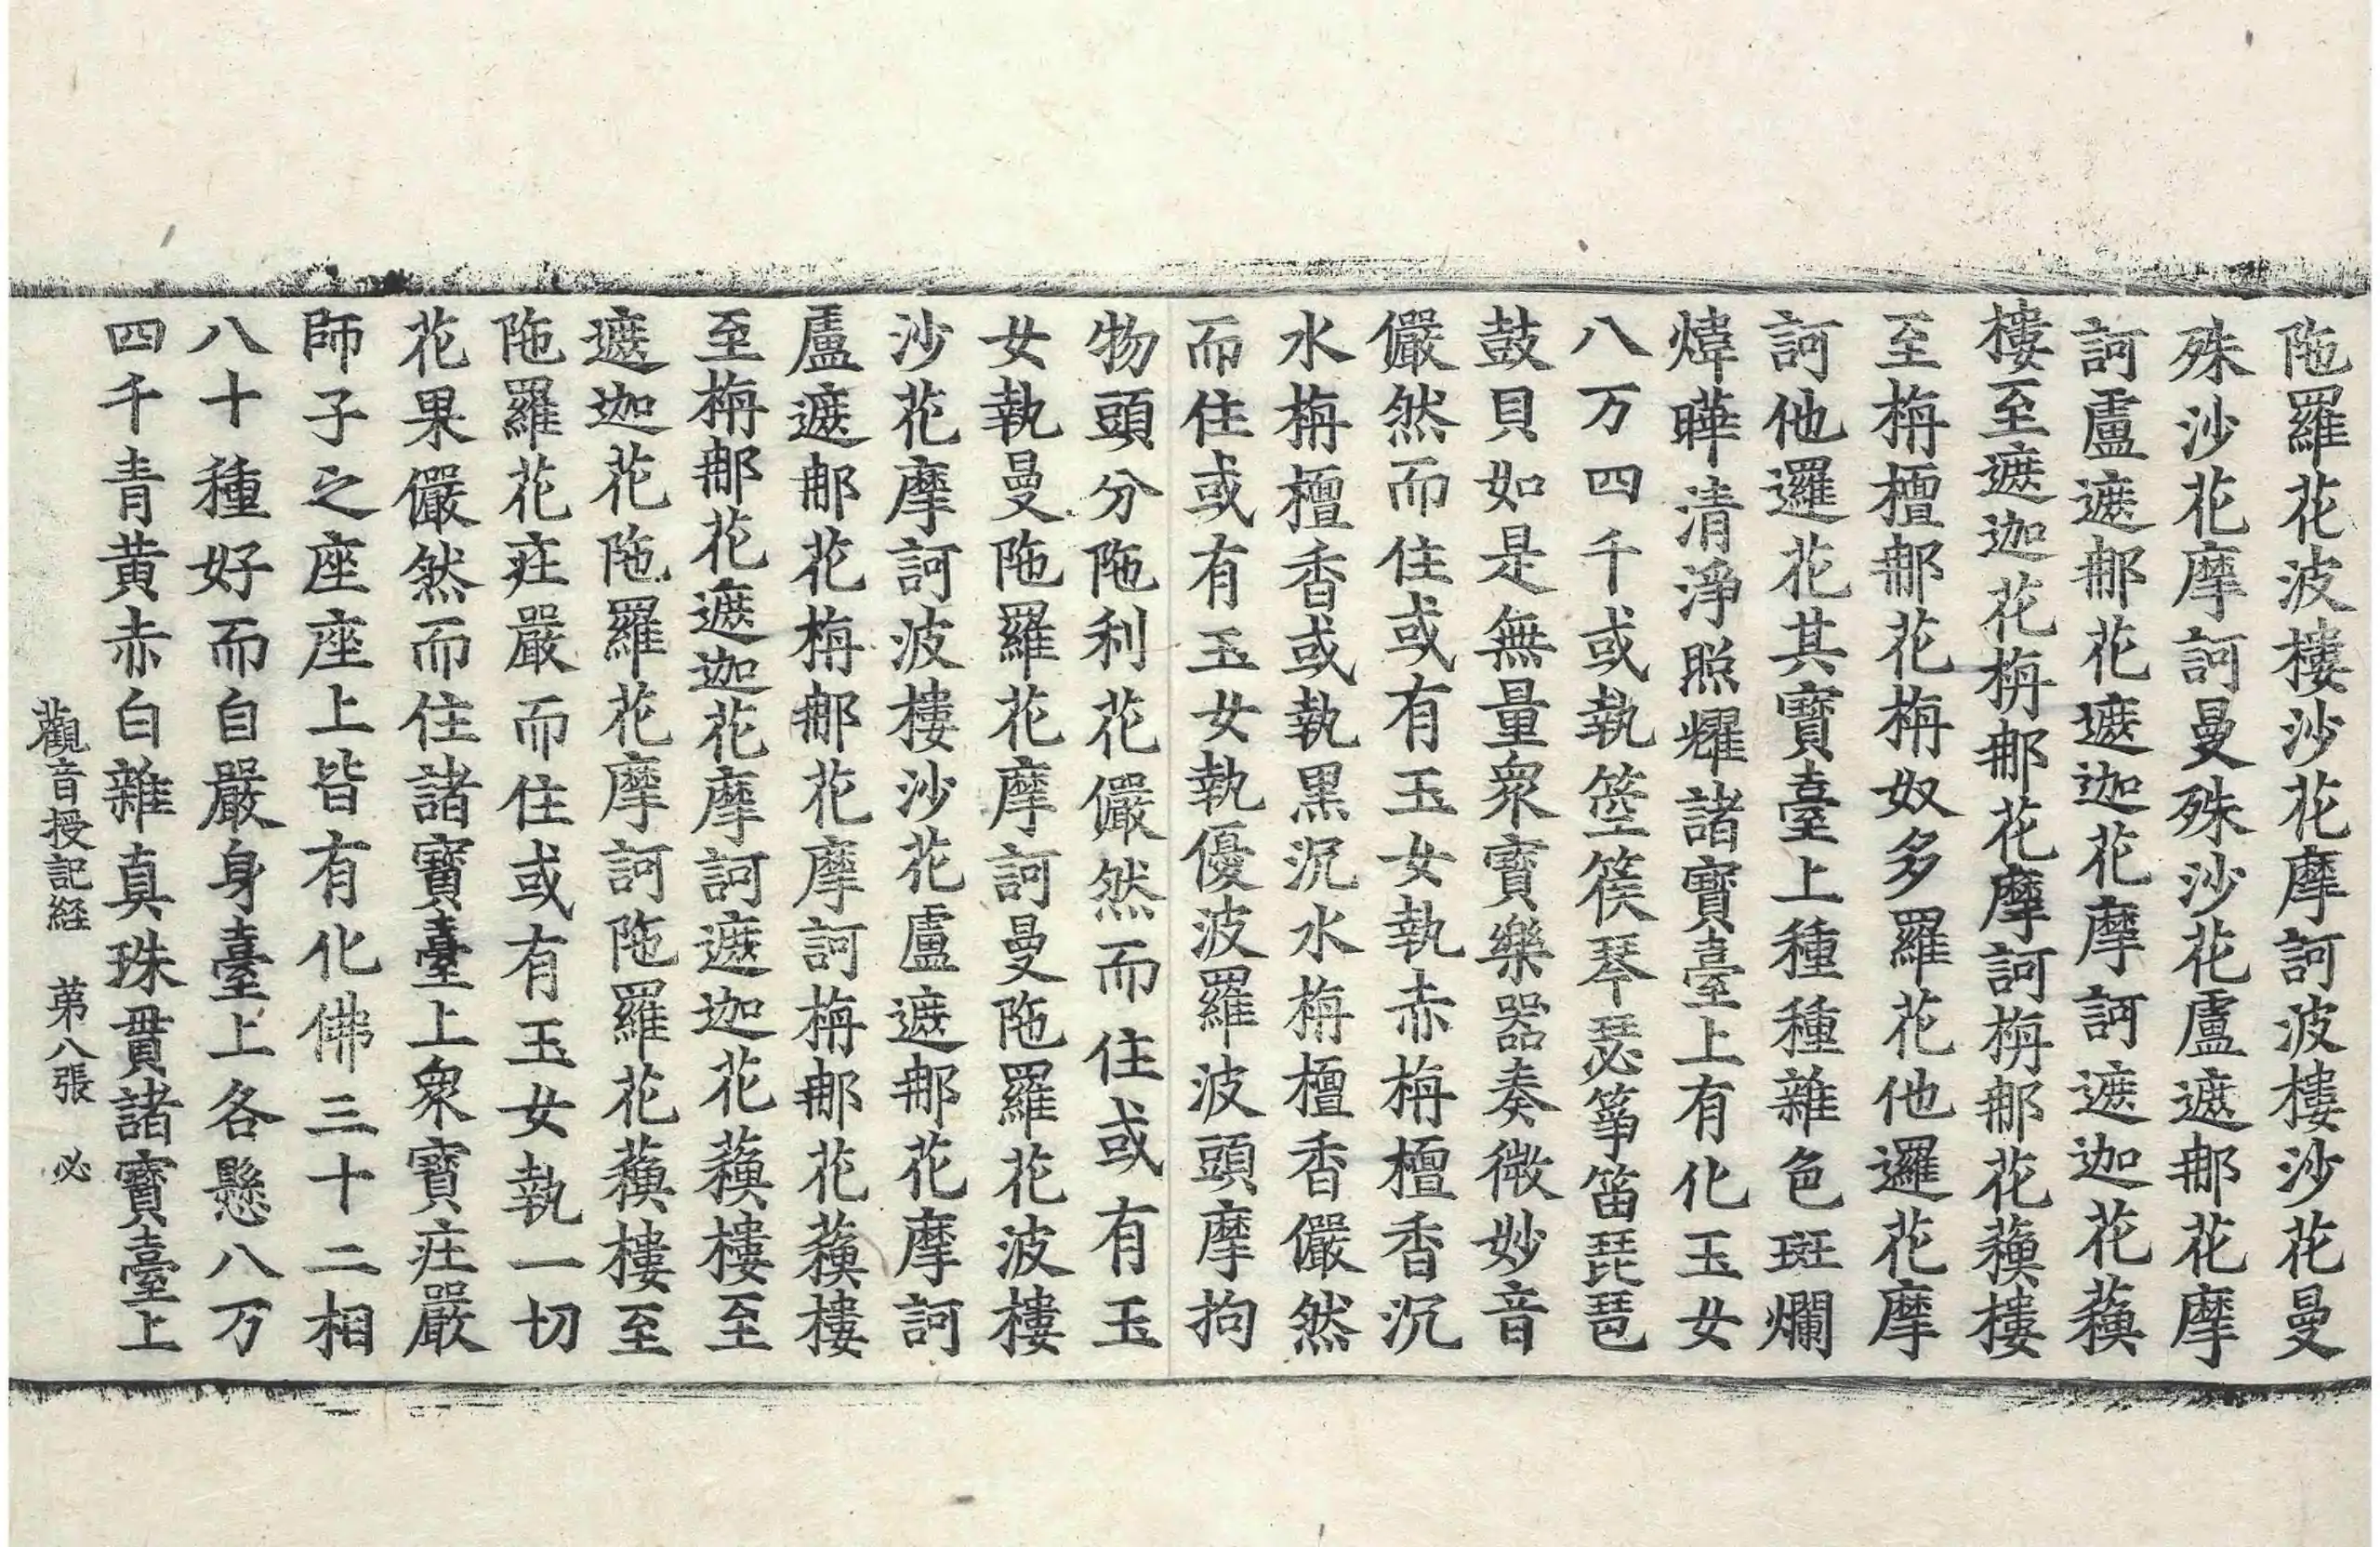 陁羅花波樓沙花摩訶波樓沙花曼
殊沙花摩訶曼殊沙花盧遮郍花摩
訶盧遮郍花遮迦花摩訶遮迦花蘇
樓至遮迦花栴郍花摩訶栴郍花蘇樓
至栴檀郍花栴奴多羅花他邏花摩
訶他邏花其寶臺上種種雜色斑爛
煒曄清淨照耀諸寶臺上有化玉女
八万四千或執箜篌琴瑟筝笛琵琶
鼓貝如是無量衆寶樂器奏微妙音
儼然而住或有玉女執赤栴檀香沉
水栴檀香或執黒沉水栴檀香儼然
而住或有玉女執優波羅波頭摩拘
物頭分陁利花儼然而住或有玉
女執曼陁羅花摩訶曼陁羅花波樓
沙花摩訶波樓沙花盧遮郍花摩訶
盧遮郍花栴郍花摩訶栴郍花蘇樓
至栴郍花遮迦花摩訶遮迦花蘇樓至
遮迦花陁羅花摩訶陁羅花蘇樓至
陁羅花荘嚴而住或有玉女執一切
花果儼然而住諸寶臺上衆寶荘嚴
師子之座座上皆有化佛三十二相
八十種好而自嚴身臺上各懸八万
四千青黄赤白雜真珠貫諸寶臺上
觀音授記経 苐八張 必